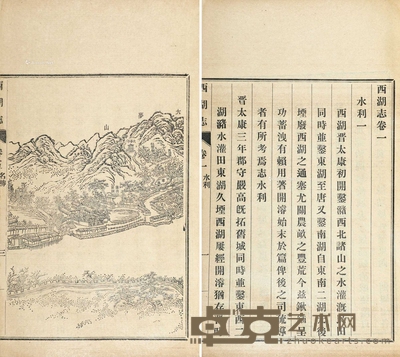 西湖志卷一
水利一
西湖晉太康初開鑿瀦西北諸山之水灌溉田
同時並鑿東湖至唐又鑿南湖自東南二湖後
堙廢西湖之通塞尤關農畝之豐荒今呈
功蓄洩有賴用著開濬始末於篇俾後之司疏導
者有所考焉志水利
晉太康三年郡守嚴高旣拓舊城同時並鑿東西
湖瀦水灌田東湖久堙西湖屢經開濬猶存
西湖志
卷一
水利
大夢山
西湖志
名勝
卓克艺术网